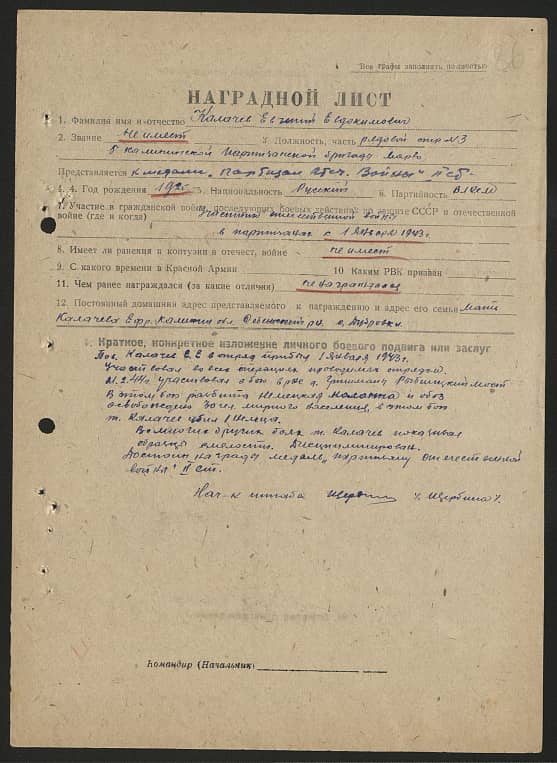 Все графы заполнять полностью
86
НАГРАДНОЙ ЛИСТ
1. Фамилия имя и отчество Калачев Евгений Евдокимович
2. Звание Не имеет 3 Должность, часть рядовой отр №3
5 калининской партизанской бригады
Представляется к медали „Партизан Отеч. Войны" II ст.
4. Год рождения 192 5. Национальность Русский 6. Партийность ВЛКСМ
7. Участие в гражданской войне, последующих боевых действиях по защите СССР и отечественной
войне (где и когда) Участник отечественной войны
в партизанах с 1 Января 1943 г.
8. Имеет ли ранения и контузии в отечест, войне не имеет
9. С какого времени в Красной Армии 10 Каким РВК призван
11. Чем ранее награждался (за какие отличия) не награждался
12. Постоянный домашний адрес представляемого к награждению и адрес его семьи Мать
Калачева Ефр. Калинин обл.
Краткое, конкретное изложение личного боевого подвига или заслуг
Тов. Калачев Е Е в отряд прибыл 1 Января 1943 г.
Участвовал во всех операциях проводимых отрядом.
В этом бою разбита немецкая колонна и обоз
освобождено мирного населения, в этом бою
т. Калачев убил 1 немца.
Во многих других боях т. Калачев показывал
образцы смелости. Дисциплинирован.
Достоин награды медаль „партизану отечественной
войны" II ст.
Нач-к штаба Щербина /Щербина/.
Командир (Начальник)